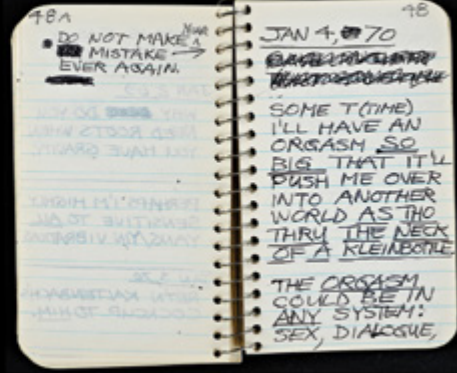 48A
• DO NOT MAKE YOUR
MISTAKE →
EVER AGAIN.
48
JAN 4, 70
SOME T(TIME)
I'LL HAVE AN
ORGASM SO
BIG THAT IT'LL
PUSH ME OVER
INTO ANOTHER
WORLD AS THO
THRU THE NECK
OF A KLEINBOTTLE
THE ORGASM
COULD BE IN
ANY SYSTEM:
SEX, DIALOGUE,